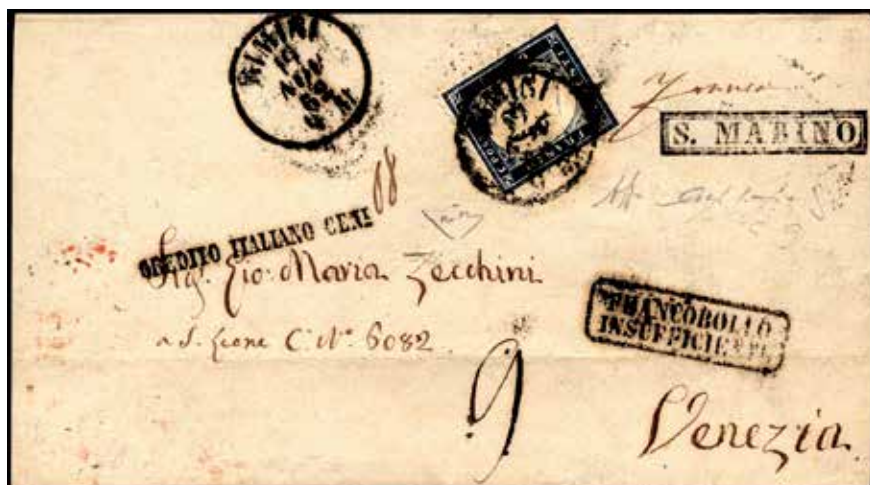 RIMINI
19
NOV
62
RIMINI
19
FRANCO
Franco
S. MARINO
CREDITO ITALIANO CENT
68
Sig. Gio: Maria Zecchini
a S. Leone C. N° 6082
FRANCOBOLLO
INSUFFICIENTE
9
Venezia